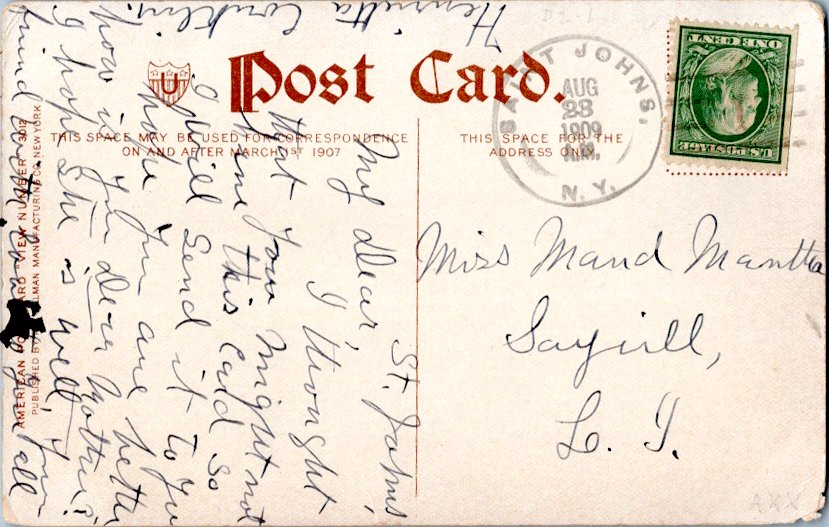 Post Card.
THIS SPACE MAY BE USED FOR CORRESPONDENCE
ON AND AFTER MARCH 1ST 1907
THIS SPACE FOR THE
ADDRESS ONLY.
SAINT JOHNS,
AUG
28
1909
N. Y.
U.S. POSTAGE
ONE CENT
Miss Maud Mantha
Sayvill,
L. I.
St. Johns
My dear,
I thought
that you might not
have this card so
I will send it to you
hope you are better
how is you dear Mother?
I hope she is well, Your
friend with love to you all
Henrietta Conklin.
AMERICAN POST CARD "VIEW NUMBER 3012
MANUFACTURING CO. NEW YORK
U
AXX